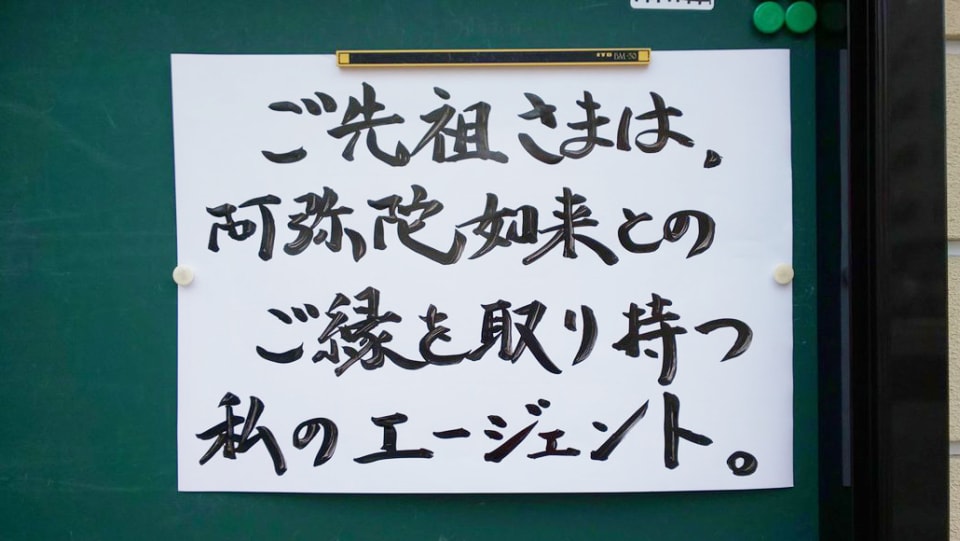 BM-50
ご先祖さまは、
阿弥陀如来との
ご縁を取り持つ
私のエージェント。